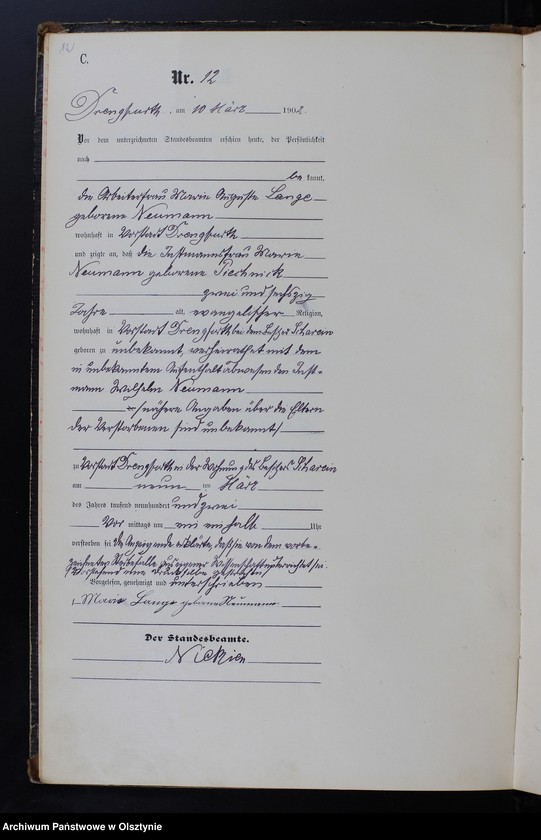 12
C.
Nr. 12
Drengfurth, am 10 März 1902.
Vor dem unterzeichneten Standesbeamten erschien heute, der Persönlichkeit
nach
be kannt,
die Arbeiterfrau Marie Auguste Lange
geborene Neumann
wohnhaft in Vorstadt Drengfurth
und zeigte an, daß die Instmannsfrau Marie
Neumann geborene Piechnick
zwei und sechszig
Jahre alt, evangelischer Religion,
wohnhaft in Vorstadt Drengfurth bei dem Besitzer
geboren zu unbekannt, verheirathet mit dem
in unbekanntem Aufenthalt abwesenden Inst-
mann Wilhelm Neumann
(nähere Angaben über die Eltern
der Verstorbenen sind unbekannt)
zu Vorstadt Drengfurth in der Wohnung des Besitzers
am neun ten März
des Jahres tausend neunhundert und zwei
Vor mittags um ein einhalb Uhr
verstorben sei. Die Anzeigende erklärte, daß sie von dem vorbe-
zeichneten Sterbefalle aus eigener Wissenschaft unterrichtet sei.
Vorstehend eine Druckselbe gestrichen
Vorgelesen, genehmigt und unterschrieben
Marie Lange geborene Neumann
Der Standesbeamte.
Archiwum Państwowe w Olsztynie